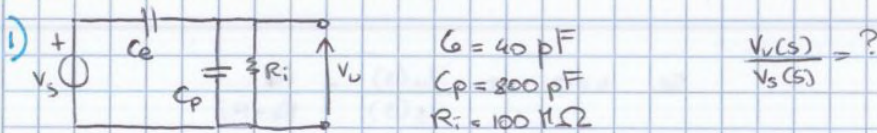 1)
+
Vs
Ce
Cp
Ri
Vu
Ce = 40 pF
Cp = 800 pF
Ri = 100 MΩ
Vu(s)
Vs(s)
= ?